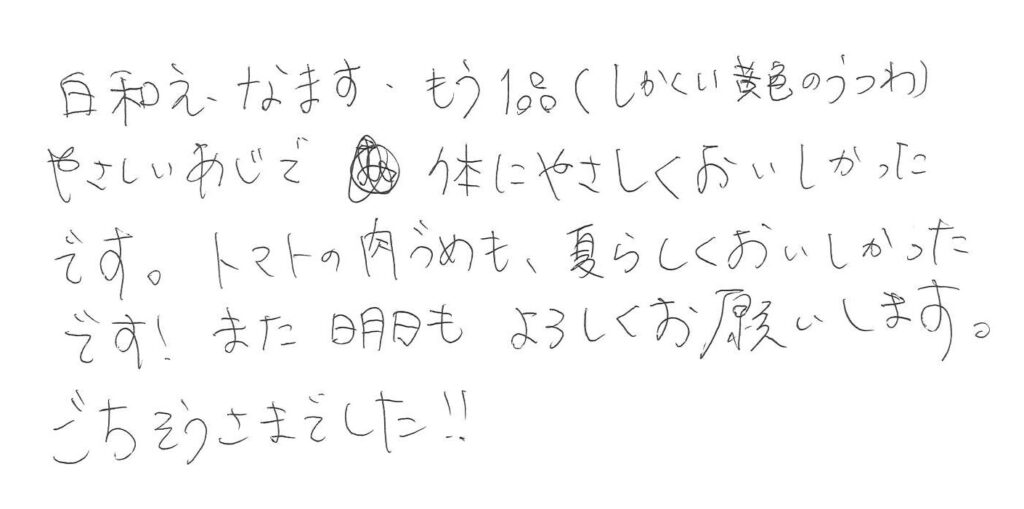 白和え、なます、もう1品(しかくい黄色のうつわ)
やさしいあじで 体にやさしくおいしかった
です。トマトの肉づめも、夏らしくおいしかった
です! また明日も よろしくお願いします。
ごちそうさまでした!!